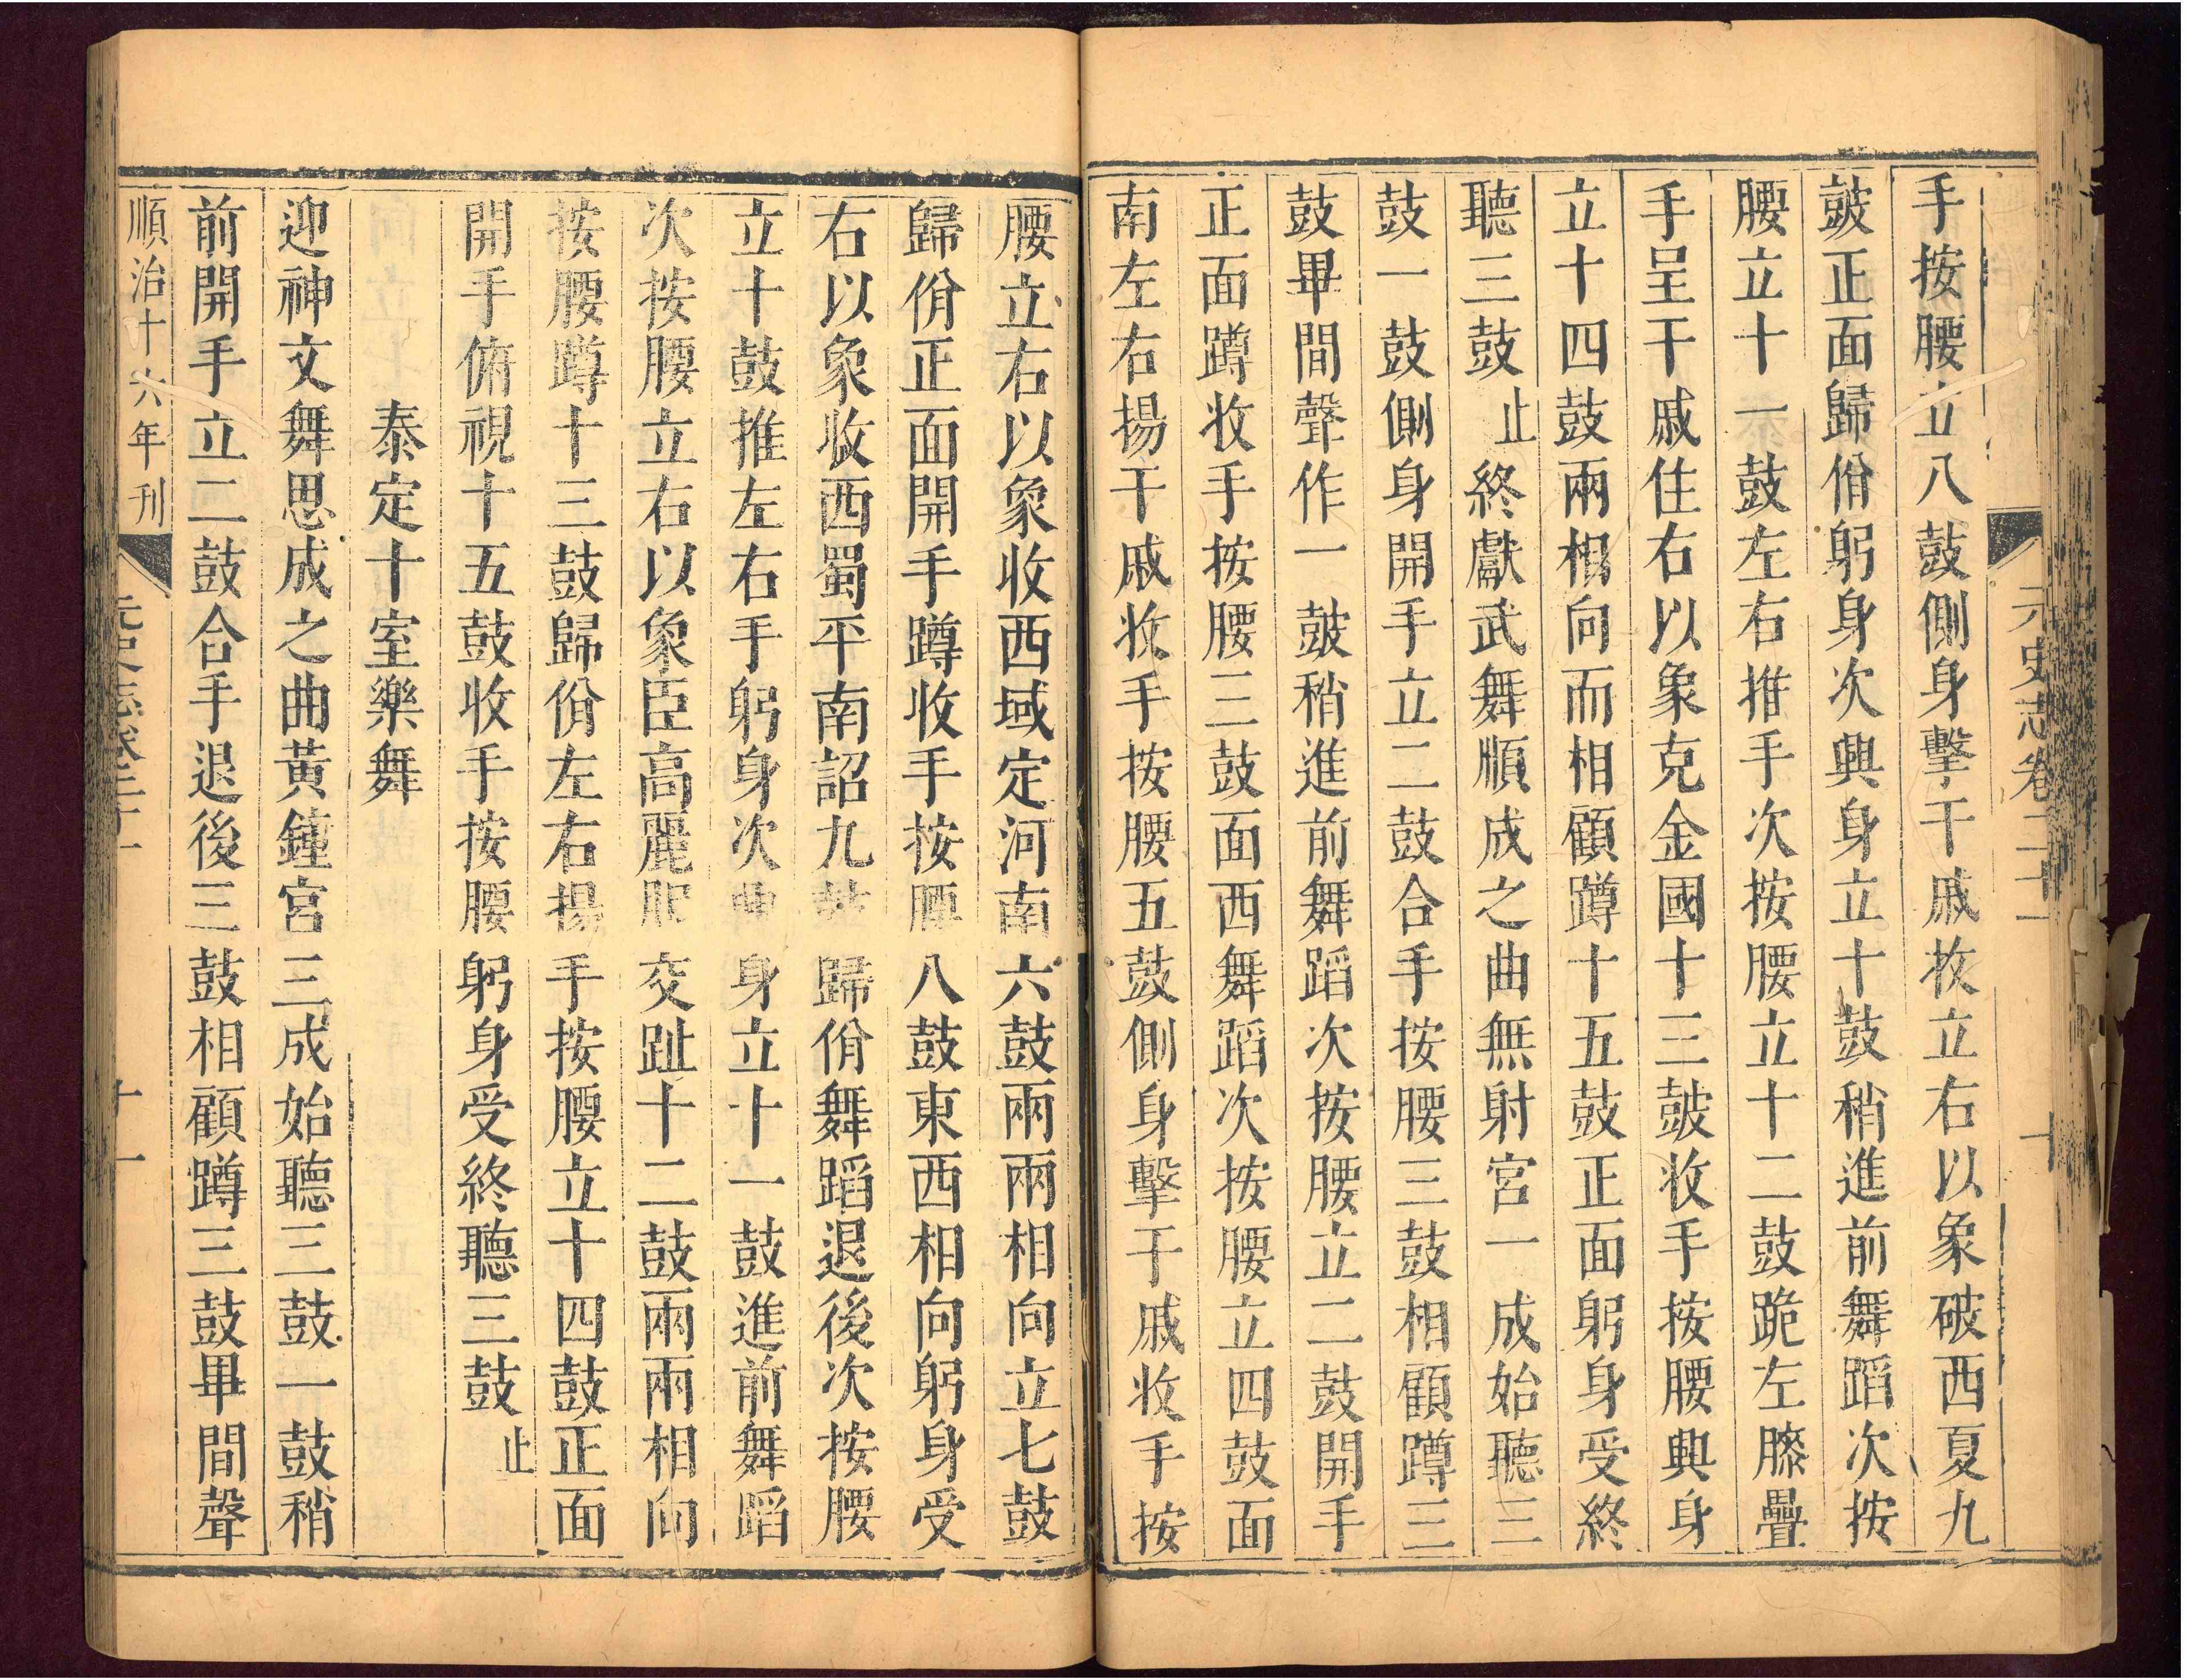 元史志卷二十一
十
手按腰立八鼓側身擊干戚收立右以象破西夏九
鼓正面歸佾躬身次興身立十鼓稍進前舞蹈次按
腰立十一鼓左右推手次按腰立十二鼓跪左膝疊
手呈干戚住右以象克金國十三鼓收手按腰興身
立十四鼓兩相向而相顧蹲十五鼓正面躬身受終
聽三鼓止終獻武舞順成之曲無射宮一成始聽三
鼓一鼓側身開手立二鼓合手按腰三鼓相顧蹲三
鼓畢間聲作一鼓稍進前舞蹈次按腰立二鼓開手
正面蹲收手按腰三鼓面西舞蹈次按腰立四鼓面
南左右揚干戚收手按腰五鼓側身擊干戚收手按
腰立右以象收西域定河南六鼓兩兩相向立七鼓
歸佾正面開手蹲收手按腰八鼓東西相向躬身受
右以象收西蜀平南詔九鼓歸佾舞蹈退後次按腰
立十鼓推左右手躬身次曲身立十一鼓進前舞蹈
次按腰立右以象臣高麗服交趾十二鼓兩兩相向
按腰蹲十三鼓歸佾左右揚手按腰立十四鼓正面
開手俯視十五鼓收手按腰躬身受終聽三鼓止
泰定十室樂舞
迎神文舞思成之曲黃鐘宮三成始聽三鼓一鼓稍
前開手立二鼓合手退後三鼓相顧蹲三鼓畢間聲
順治十六年刊
元史志卷二十一
十一